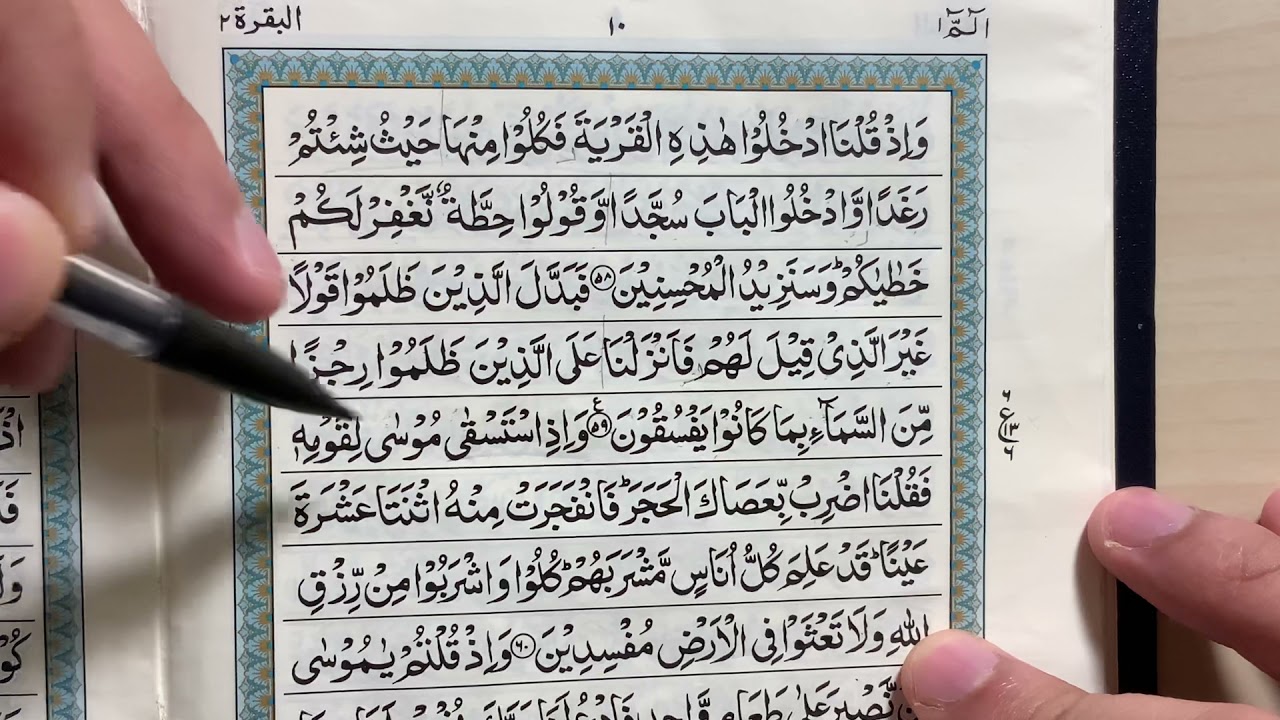 الٓمّٓ ١٠ البقرة ٢
وَاِذْ قُلْنَا ادْخُلُوْا هٰذِهِ الْقَرْيَةَ فَكُلُوْا مِنْهَا حَيْثُ شِئْتُمْ
رَغَدًا وَّادْخُلُوا الْبَابَ سُجَّدًا وَّقُوْلُوْا حِطَّةٌ نَّغْفِرْ لَكُمْ
خَطٰيٰكُمْ ؕ وَسَنَزِيْدُ الْمُحْسِنِيْنَ ۝٥٨ فَبَدَّلَ الَّذِيْنَ ظَلَمُوْا قَوْلًا
غَيْرَ الَّذِىْ قِيْلَ لَهُمْ فَاَنْزَلْنَا عَلَى الَّذِيْنَ ظَلَمُوْا رِجْزًا
مِّنَ السَّمَآءِ بِمَا كَانُوْا يَفْسُقُوْنَ ۝٥٩ ع وَاِذِ اسْتَسْقٰى مُوْسٰى لِقَوْمِهٖ
٦ ع ١٣ ٦
فَقُلْنَا اضْرِبْ بِّعَصَاكَ الْحَجَرَ ؕ فَانْفَجَرَتْ مِنْهُ اثْنَتَا عَشْرَةَ
عَيْنًا ؕ قَدْ عَلِمَ كُلُّ اُنَاسٍ مَّشْرَبَهُمْ ؕ كُلُوْا وَاشْرَبُوْا مِنْ رِّزْقِ
اللّٰهِ وَلَا تَعْثَوْا فِى الْاَرْضِ مُفْسِدِيْنَ ۝٦٠ وَاِذْ قُلْتُمْ يٰمُوْسٰى
نَّصْبِرَ عَلٰى طَعَامٍ وَّاحِدٍ فَادْعُ لَنَا رَبَّكَ